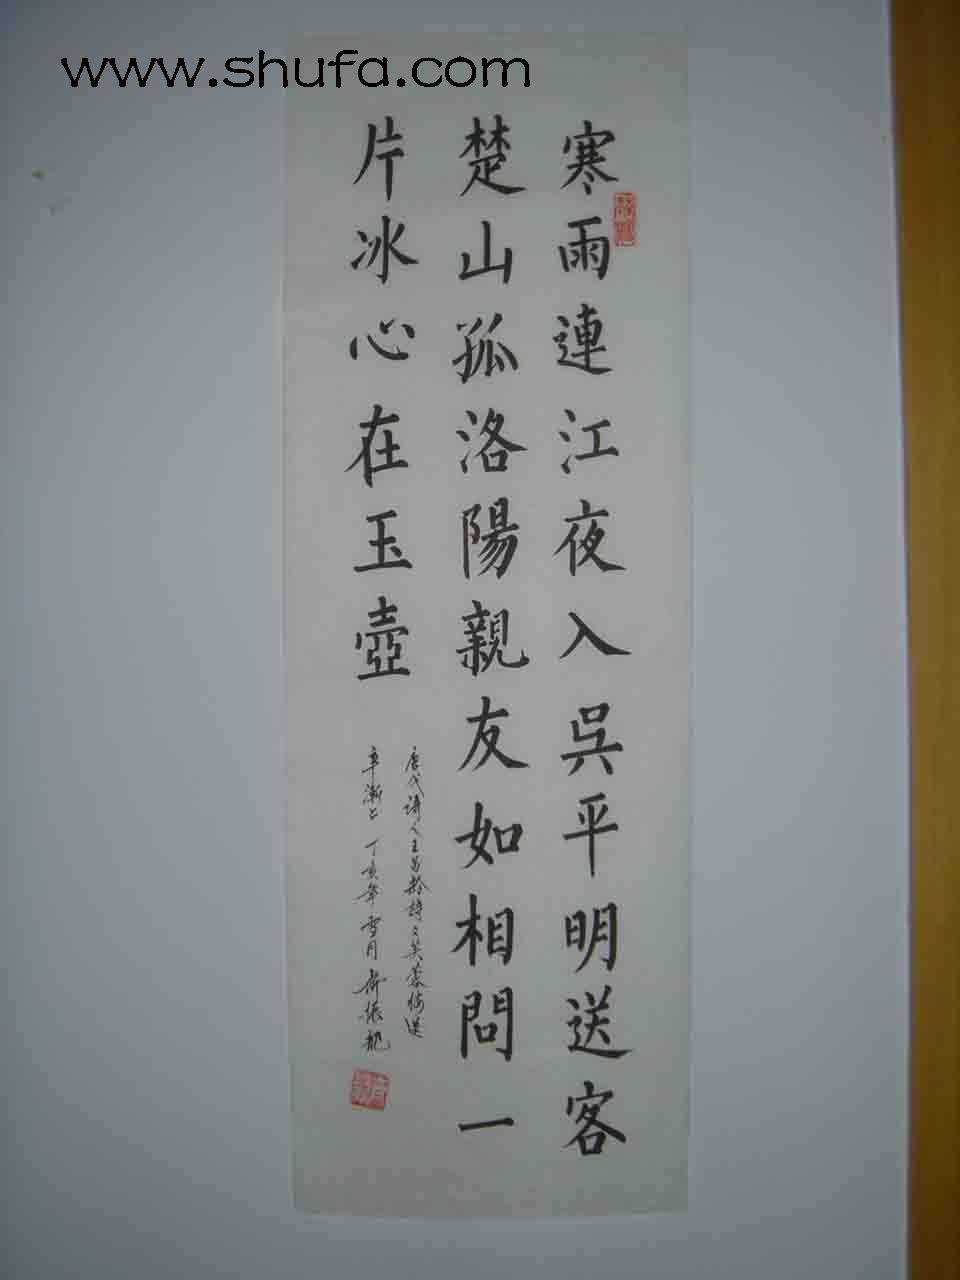 www.shufa.com
寒雨連江夜入吳平明送客
楚山孤洛陽親友如相問一
片冰心在玉壺
唐代詩人王昌齡詩文芙蓉樓送
辛漸二丁亥年雪月